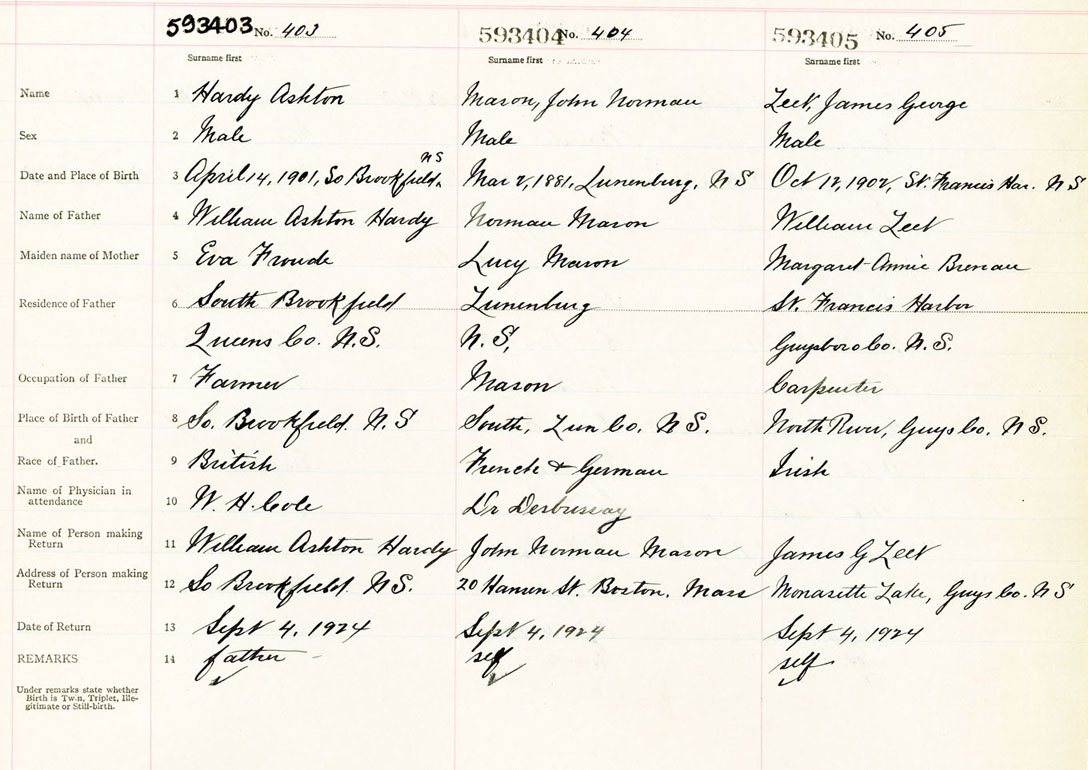 593403 No. 403 593404 No. 404 593405 No. 405
Surname first Surname first Surname first
Name 1 Hardy Ashton Mason, John Norman Leet, James George
Sex 2 Male Male Male
NS
Date and Place of Birth 3 April 14, 1901, So Brookfield. Mar 7, 1881, Lunenburg, NS Oct 12, 1902, St. Francis Har. NS
Name of Father 4 William Ashton Hardy Norman Mason William Leet
Maiden name of Mother 5 Eva Froude Lucy Mason Margaret Annie Brenau
Residence of Father 6 South Brookfield Lunenburg St. Francis Harbor
Queens Co. N.S. N.S. Guysboro Co. N.S.
Occupation of Father 7 Farmer Mason Carpenter
Place of Birth of Father 8 So. Brookfield. N.S South, Lun Co. NS. North River, Guys Co. NS.
and
Race of Father. 9 British French & German Irish
Name of Physician in
attendance 10 W. H. Cole Dr
Name of Person making
Return 11 William Ashton Hardy John Norman Mason James G Leet
Address of Person making
Return 12 So Brookfield. NS. 20 St. Boston. Mass Lake, Guys Co. NS
Date of Return 13 Sept 4, 1924 Sept 4, 1924 Sept 4, 1924
REMARKS 14 father self self
Under remarks state whether
Birth is Twin, Triplet, Ille-
gitimate or Still-birth.